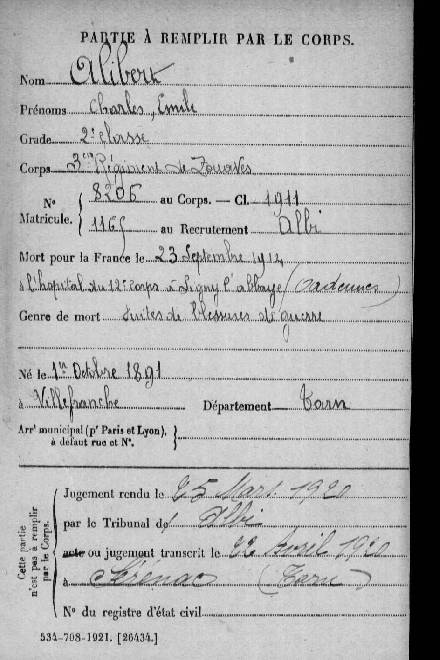 PARTIE À REMPLIR PAR LE CORPS.
Nom Alibert
Prénoms Charles, Emile
Grade 2e classe
Corps 3me Régiment de Zouaves
N° Matricule. { 8206 au Corps. — Cl. 1911
1165 au Recrutement Albi
Mort pour la France le 23 Septembre 1914
à l'hopital du 12e corps à Signy l'abbaye (Ardennes)
Genre de mort Suites de blessures de guerre
Né le 1er Octobre 1891
à Villefranche Département Tarn
Arrt municipal (pr Paris et Lyon), à défaut rue et N°. }
Cette partie n'est pas à remplir par le Corps.
Jugement rendu le 25 Mars 1920
par le Tribunal de Albi
acte ou jugement transcrit le 22 Avril 1920
à Sérénac (Tarn)
N° du registre d'état civil
534-708-1921. [26434.]